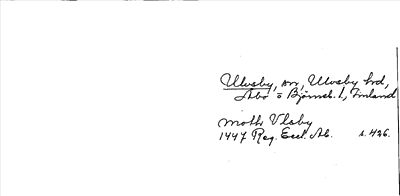 Ulvsby, sn, Ulvsby hd,
Åbo o Björneb. l, Finland
Motth Vlsby
1447 Reg. Eccl. Ab. s. 426.